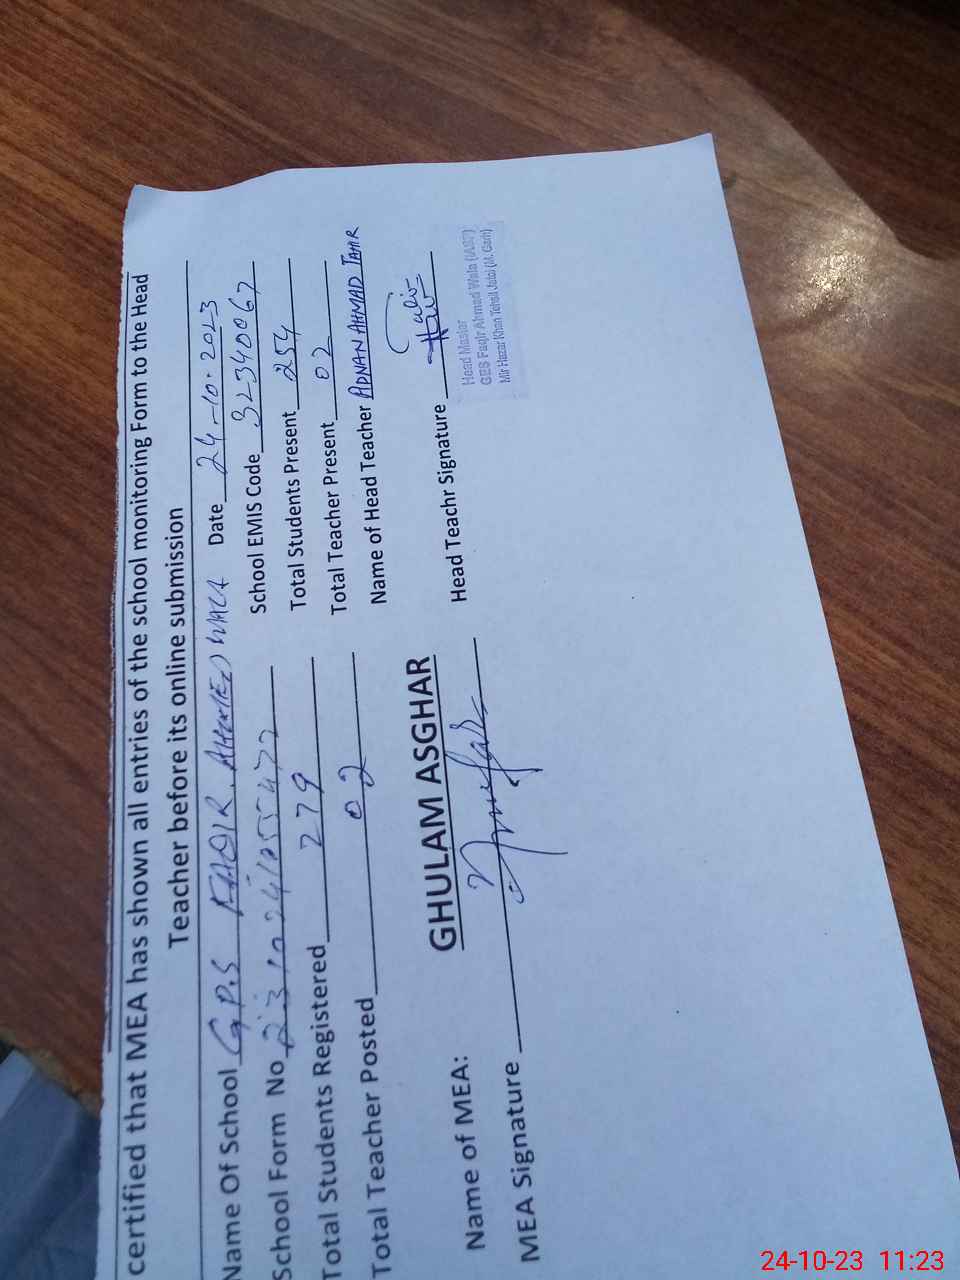 certified that MEA has shown all entries of the school monitoring Form to the Head
Teacher before its online submission
Name Of School G.P.S FAQIR AHMED WALA Date 24-10-2023
School Form No 231024105547 School EMIS Code 32340067
Total Students Registered 279 Total Students Present 254
Total Teacher Posted 02 Total Teacher Present 02
Name of Head Teacher ADNAN AHMAD TAHIR
Name of MEA: GHULAM ASGHAR
Head Teachr Signature
MEA Signature
Head Master
GES Faqir Ahmad Wala
Mir Hazar Khan Tehsil Jatoi (M. Garh)
24-10-23 11:23